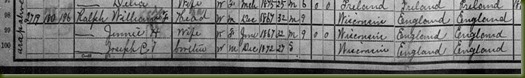 Delia Wife W F Mch 1875 25 M 6 Ireland Ireland Ireland
98 279 180 186 Ralph William F Head W M Dec 1867 32 M 9 Wisconsin England England
99 Jennie H Wife W F June 1867 32 M 9 0 0 Wisconsin England England
100 Joseph C. F Brother W M Dec 1872 27 S Wisconsin England England